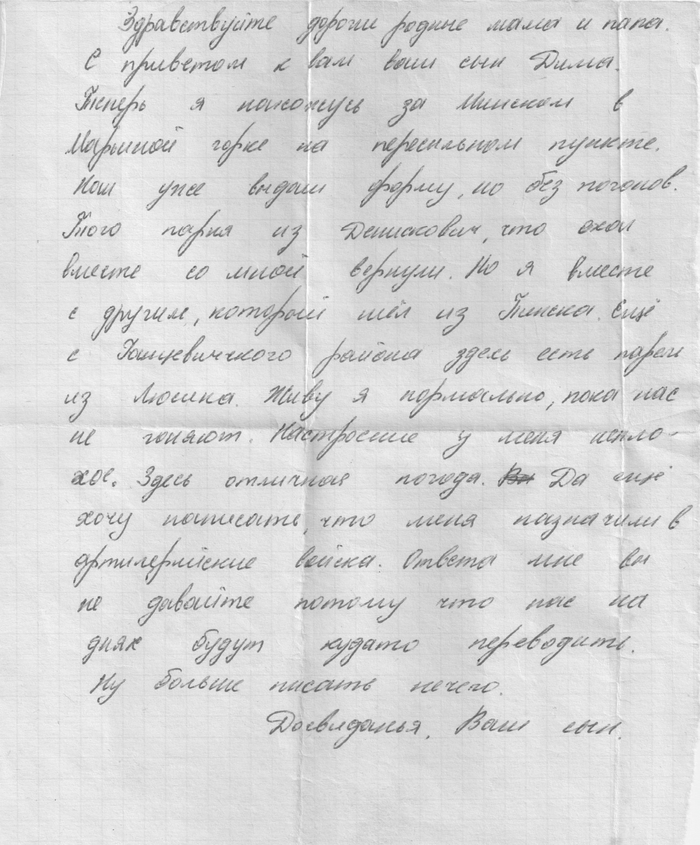 Здравствуйте дороги родине мама и папа.
С приветом к вам ваш сын Дима.
Тіперь я нахожусь за Минском в
Марьиной горке на пересильном пункте.
Нам уже выдали форму, но без погонов.
Того парня из Денискович, что ехал
вместе со мной вернули. Но я вместе
с другим, который шёл из Пинска. Ещё
с Ганцевичского района здесь есть парень
из Люсина. Живу я нормально, пока нас
не гоняют. Настроение у меня непло-
хое. Здесь отличная погода. Да ещё
хочу написать, что меня назначили в
артилерийские войска. Ответа мне вы
не давайте потому что нас на
днях будут кудато переводить.
Ну больше писать нечего.
Досвиданья. Ваш сын.